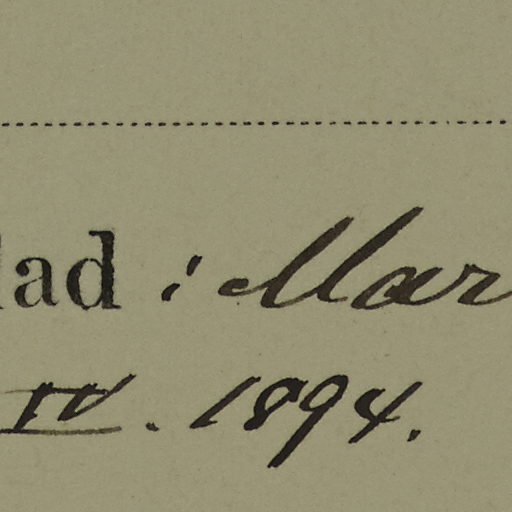 lad : Mar
IV. 1894.